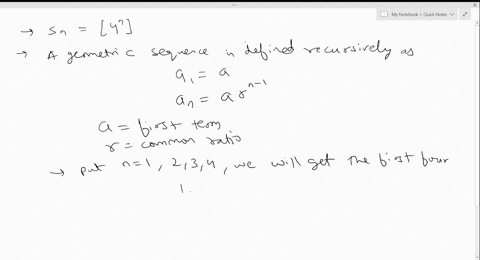 My Notebook > Quick Notes
→ Sn = [4ⁿ]
→ A geometric sequence is defined recursively as
a₁ = a
aₙ = a rⁿ⁻¹
a = first term
r = common ratio
→ put n=1, 2, 3, 4, we will get the first four
1.